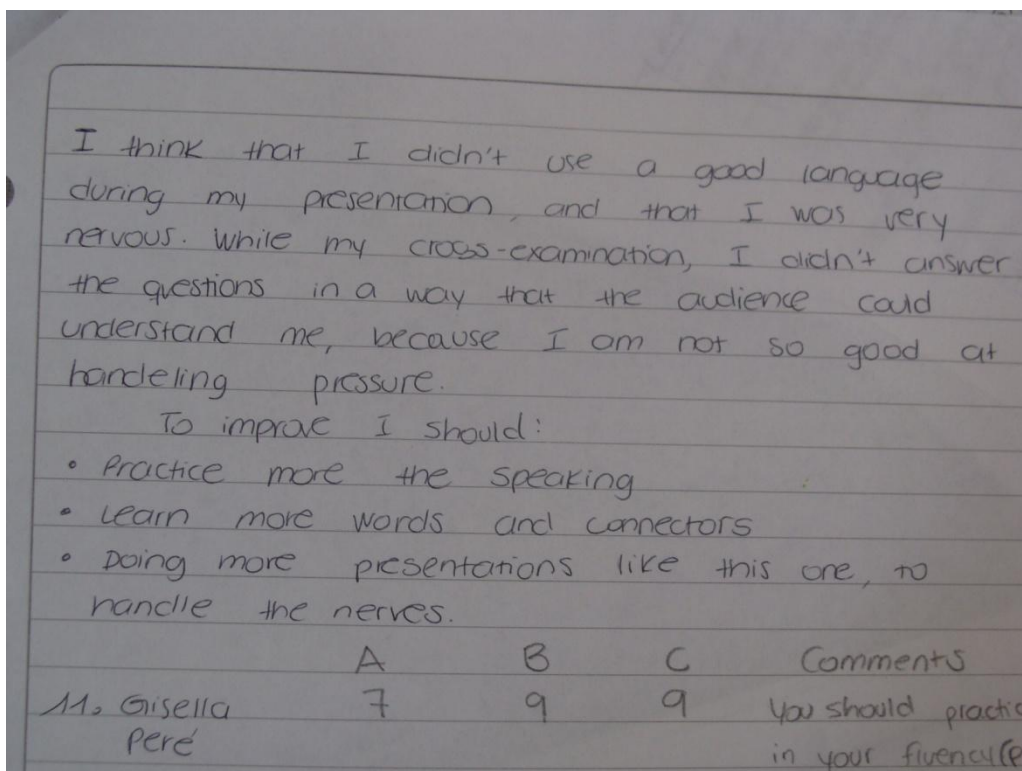 I think that I didn't use a good language
during my presentation, and that I was very
nervous. While my cross-examination, I didn't answer
the questions in a way that the audience could
understand me, because I am not so good at
handeling pressure.
To improve I should:
• Practice more the speaking
• Learn more words and connectors
• Doing more presentations like this one, to
handle the nerves.
A B C Comments
11. Gisella 7 9 9 You should practic
Peré in your fluency